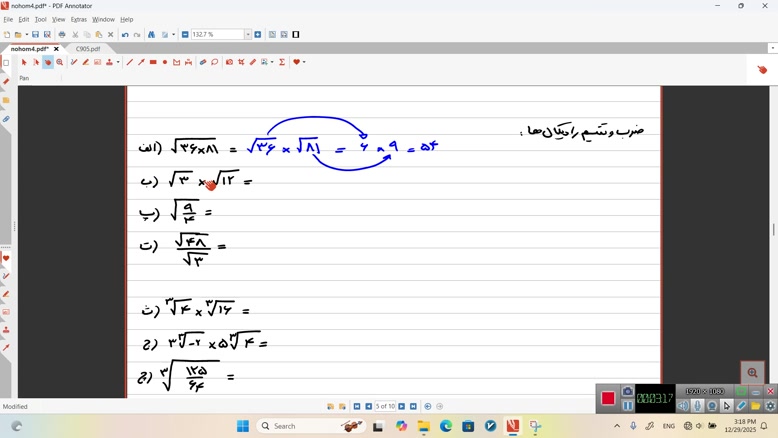 nohom4.pdf* - PDF Annotator
File Edit Tool View Extras Window Help
132.7 %
nohom4.pdf* C905.pdf
Pan
ضرب و تقسیم رادیکال ها :
الف) √۳۶×۸۱ = √۳۶ × √۸۱ = ۶ × ۹ = ۵۴
ب) √۳ × √۱۲ =
پ) √۹/۴ =
ت) √۴۸/√۳ =
ث) ³√۴ × ³√۱۶ =
ج) ۳ ³√-۲ × ۵ ³√۴ =
چ) ³√۱۲۵/۶۴ =
1920 × 1080
Modified
5 of 10
Search
ENG
3:18 PM
12/29/2025